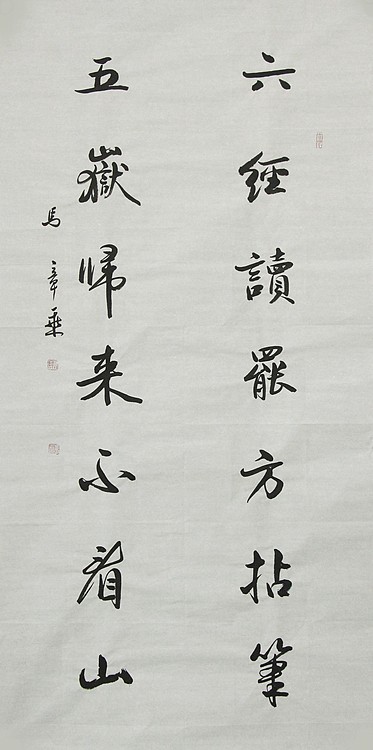 六經讀罷方拈筆
五嶽歸来不看山
馬章乘